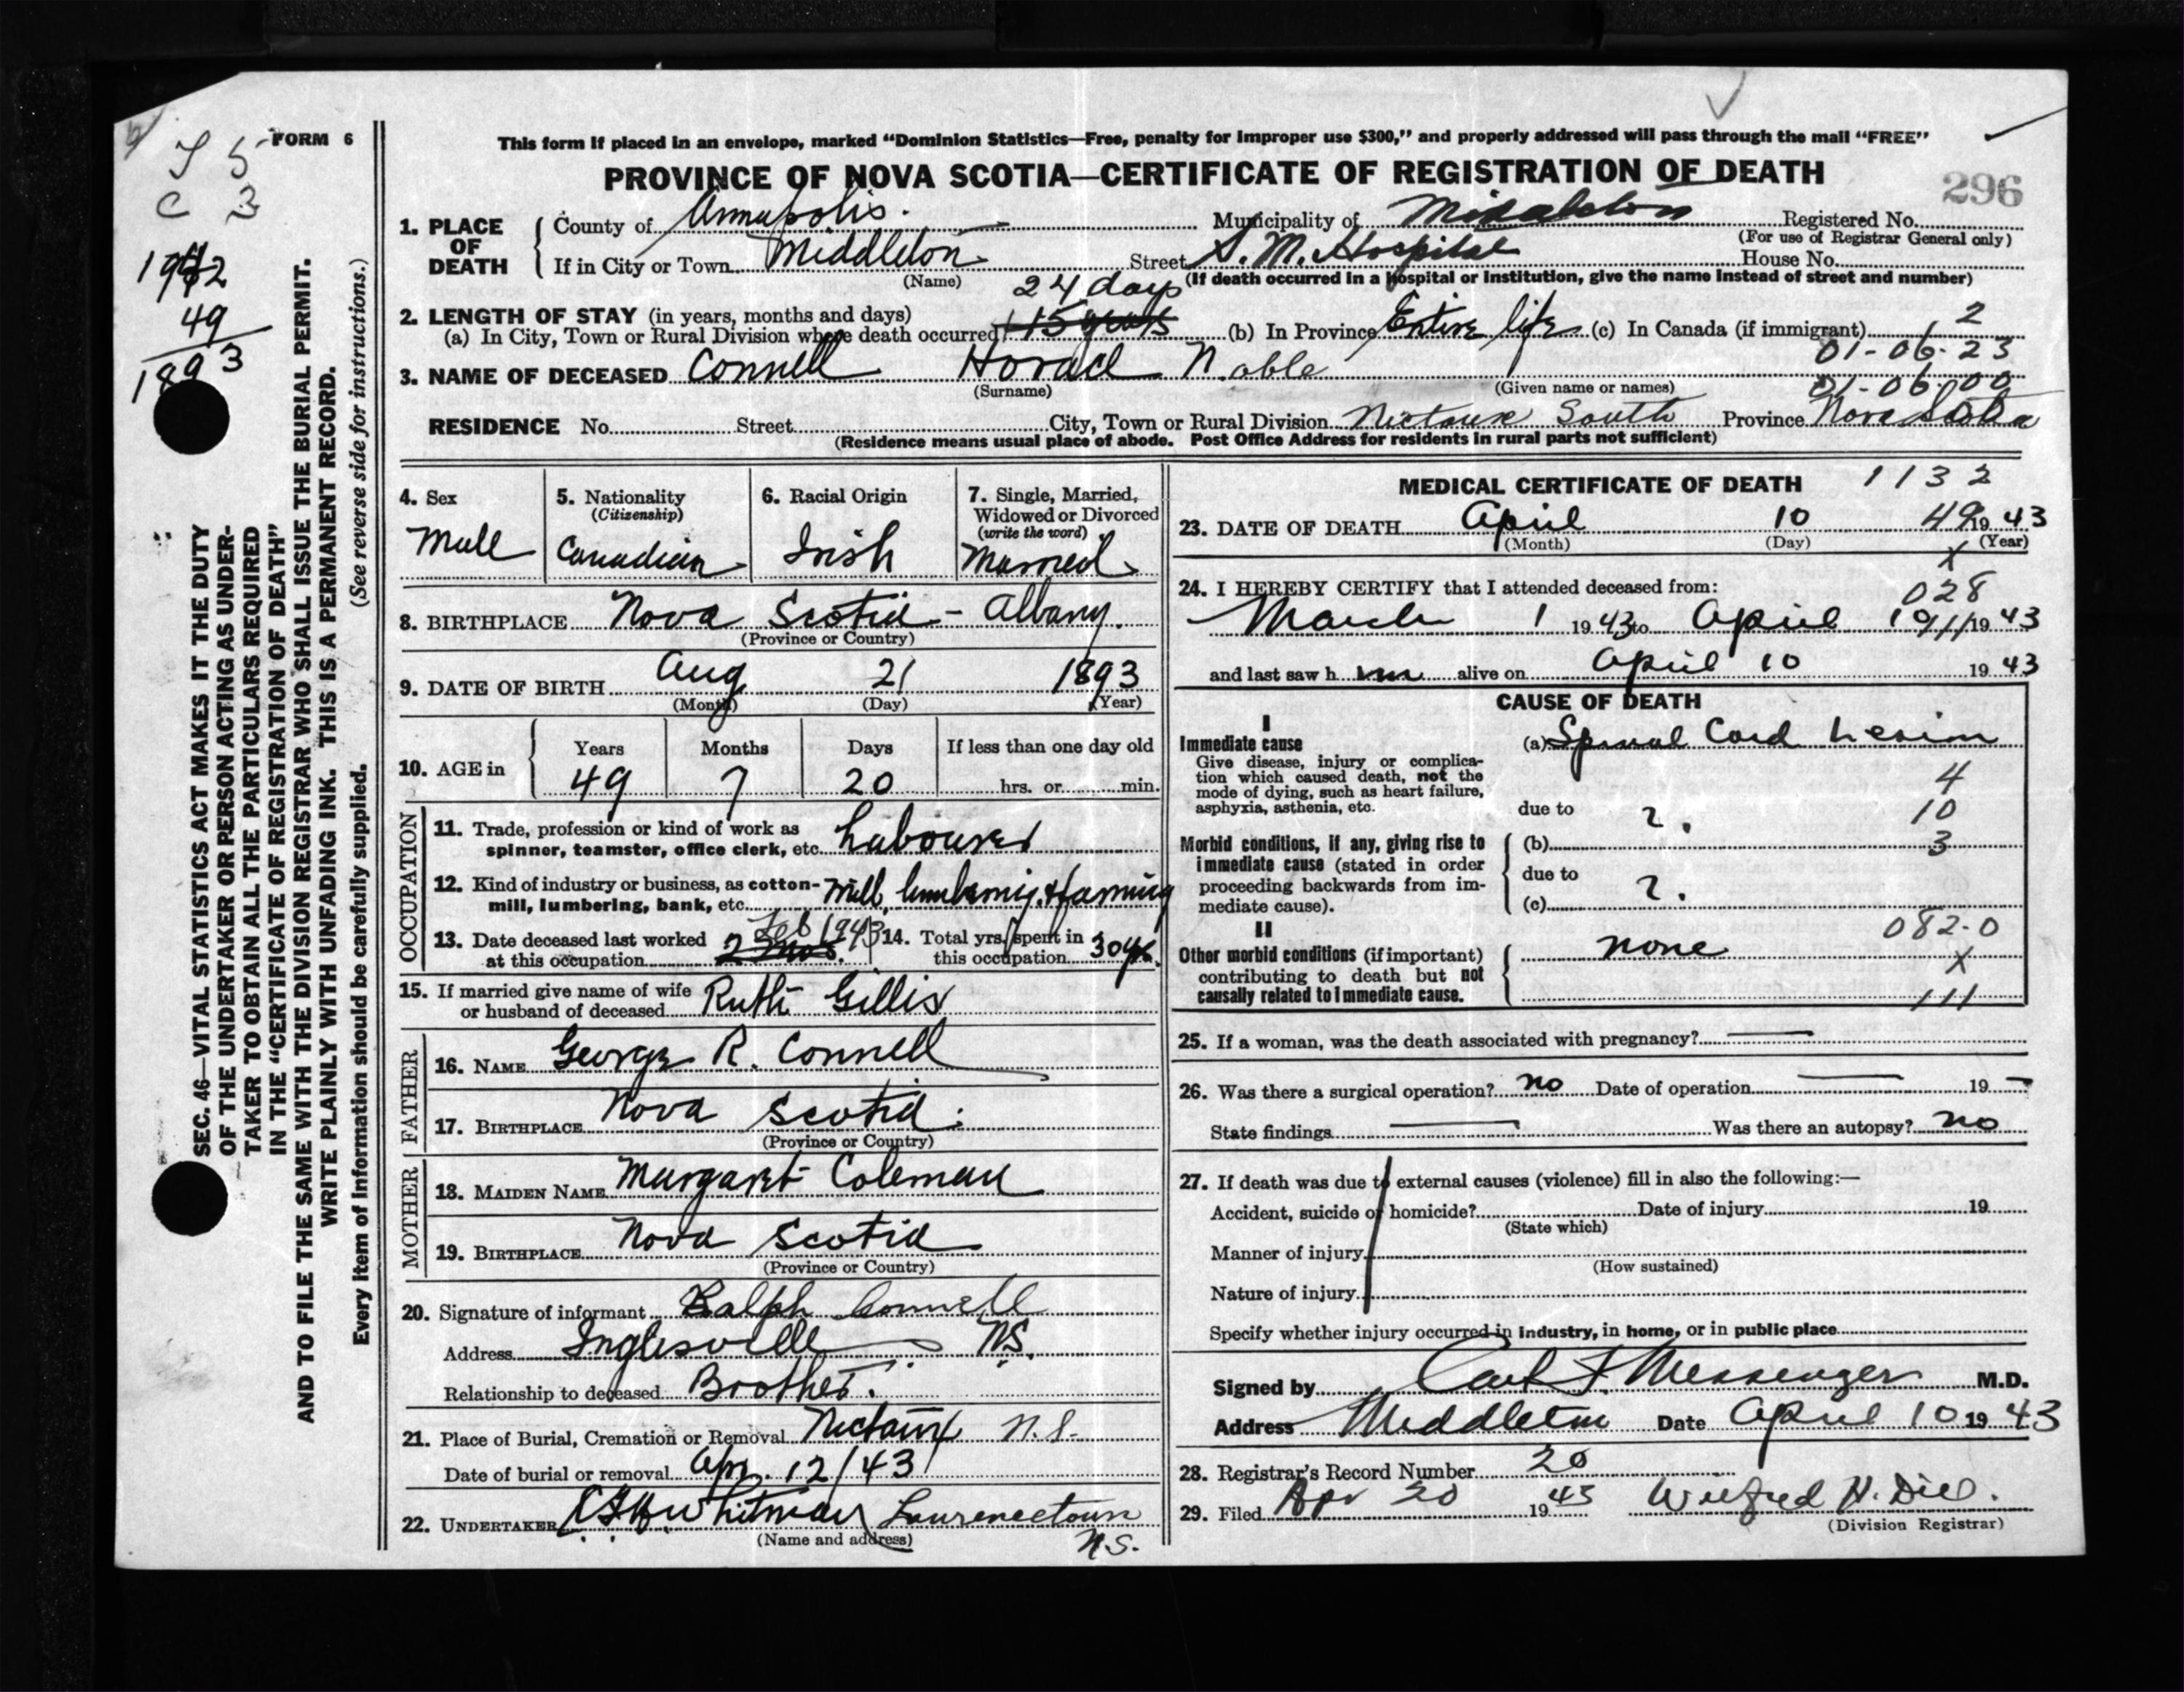 FORM 6
T 5
C 3
1942
49
1893
This form if placed in an envelope, marked “Dominion Statistics—Free, penalty for improper use $300,” and properly addressed will pass through the mail “FREE”
PROVINCE OF NOVA SCOTIA—CERTIFICATE OF REGISTRATION OF DEATH
296
1. PLACE OF DEATH
County of Annapolis. Municipality of Middleton Registered No.
(For use of Registrar General only)
If in City or Town Middleton Street S. M. Hospital House No.
(Name) (If death occurred in a hospital or institution, give the name instead of street and number)
2. LENGTH OF STAY (in years, months and days) 24 days
(a) In City, Town or Rural Division where death occurred 15 years (b) In Province Entire life (c) In Canada (if immigrant) 2
01-06-23
3. NAME OF DECEASED Connell Horace Noble
(Surname) (Given name or names) 01-06-00
RESIDENCE No. Street City, Town or Rural Division Nictaux South Province Nova Scotia
(Residence means usual place of abode. Post Office Address for residents in rural parts not sufficient)
4. Sex
Male
5. Nationality
(Citizenship)
Canadian
6. Racial Origin
Irish
7. Single, Married, Widowed or Divorced
(write the word)
Married
8. BIRTHPLACE Nova Scotia - Albany.
(Province or Country)
9. DATE OF BIRTH Aug 21 1893
(Month) (Day) (Year)
10. AGE in
Years Months Days If less than one day old
49 7 20 hrs. or min.
OCCUPATION
11. Trade, profession or kind of work as
spinner, teamster, office clerk, etc. Labourer
12. Kind of industry or business, as cotton-
mill, lumbering, bank, etc. Mill, lumbering, & farming
13. Date deceased last worked Feb 1943
at this occupation 2 mos.
14. Total yrs. spent in
this occupation 30 yrs.
15. If married give name of wife
or husband of deceased Ruth Gillis
FATHER
16. NAME George R. Connell
17. BIRTHPLACE Nova Scotia.
(Province or Country)
MOTHER
18. MAIDEN NAME Margaret Coleman
19. BIRTHPLACE Nova Scotia
(Province or Country)
20. Signature of informant Ralph Connell
Address Inglesville N.S.
Relationship to deceased Brother.
21. Place of Burial, Cremation or Removal Nictaux N.S.
Date of burial or removal Apr. 12/43
22. UNDERTAKER Whitman Lawrencetown
(Name and address) N.S.
MEDICAL CERTIFICATE OF DEATH 1132
23. DATE OF DEATH April 10 49 19 43
(Month) (Day) (Year)
X
24. I HEREBY CERTIFY that I attended deceased from:
028
March 1 19 43 to April 19 43
and last saw h im alive on April 10 19 43
CAUSE OF DEATH
I
Immediate cause
Give disease, injury or complica-
tion which caused death, not the
mode of dying, such as heart failure,
asphyxia, asthenia, etc.
(a) Spinal Cord Lesion
4
due to ?. 10
Morbid conditions, if any, giving rise to
immediate cause (stated in order
proceeding backwards from im-
mediate cause).
(b) 3
due to ?.
(c)
II
082-0
Other morbid conditions (if important)
contributing to death but not
causally related to immediate cause.
none
X
111
25. If a woman, was the death associated with pregnancy? —
26. Was there a surgical operation? no Date of operation — 19 —
State findings — Was there an autopsy? no
27. If death was due to external causes (violence) fill in also the following:—
Accident, suicide or homicide? Date of injury 19
(State which)
Manner of injury
(How sustained)
Nature of injury
Specify whether injury occurred in industry, in home, or in public place
Signed by Carl F. Messenger M.D.
Address Middleton Date April 10 19 43
28. Registrar's Record Number 20
29. Filed Apr 20 19 43 Wilfred H. Dill.
(Division Registrar)
SEC. 46—VITAL STATISTICS ACT MAKES IT THE DUTY
OF THE UNDERTAKER OR PERSON ACTING AS UNDER-
TAKER TO OBTAIN ALL THE PARTICULARS REQUIRED
IN THE “CERTIFICATE OF REGISTRATION OF DEATH”
AND TO FILE THE SAME WITH THE DIVISION REGISTRAR WHO SHALL ISSUE THE BURIAL PERMIT.
WRITE PLAINLY WITH UNFADING INK. THIS IS A PERMANENT RECORD.
Every item of information should be carefully supplied. (See reverse side for instructions.)